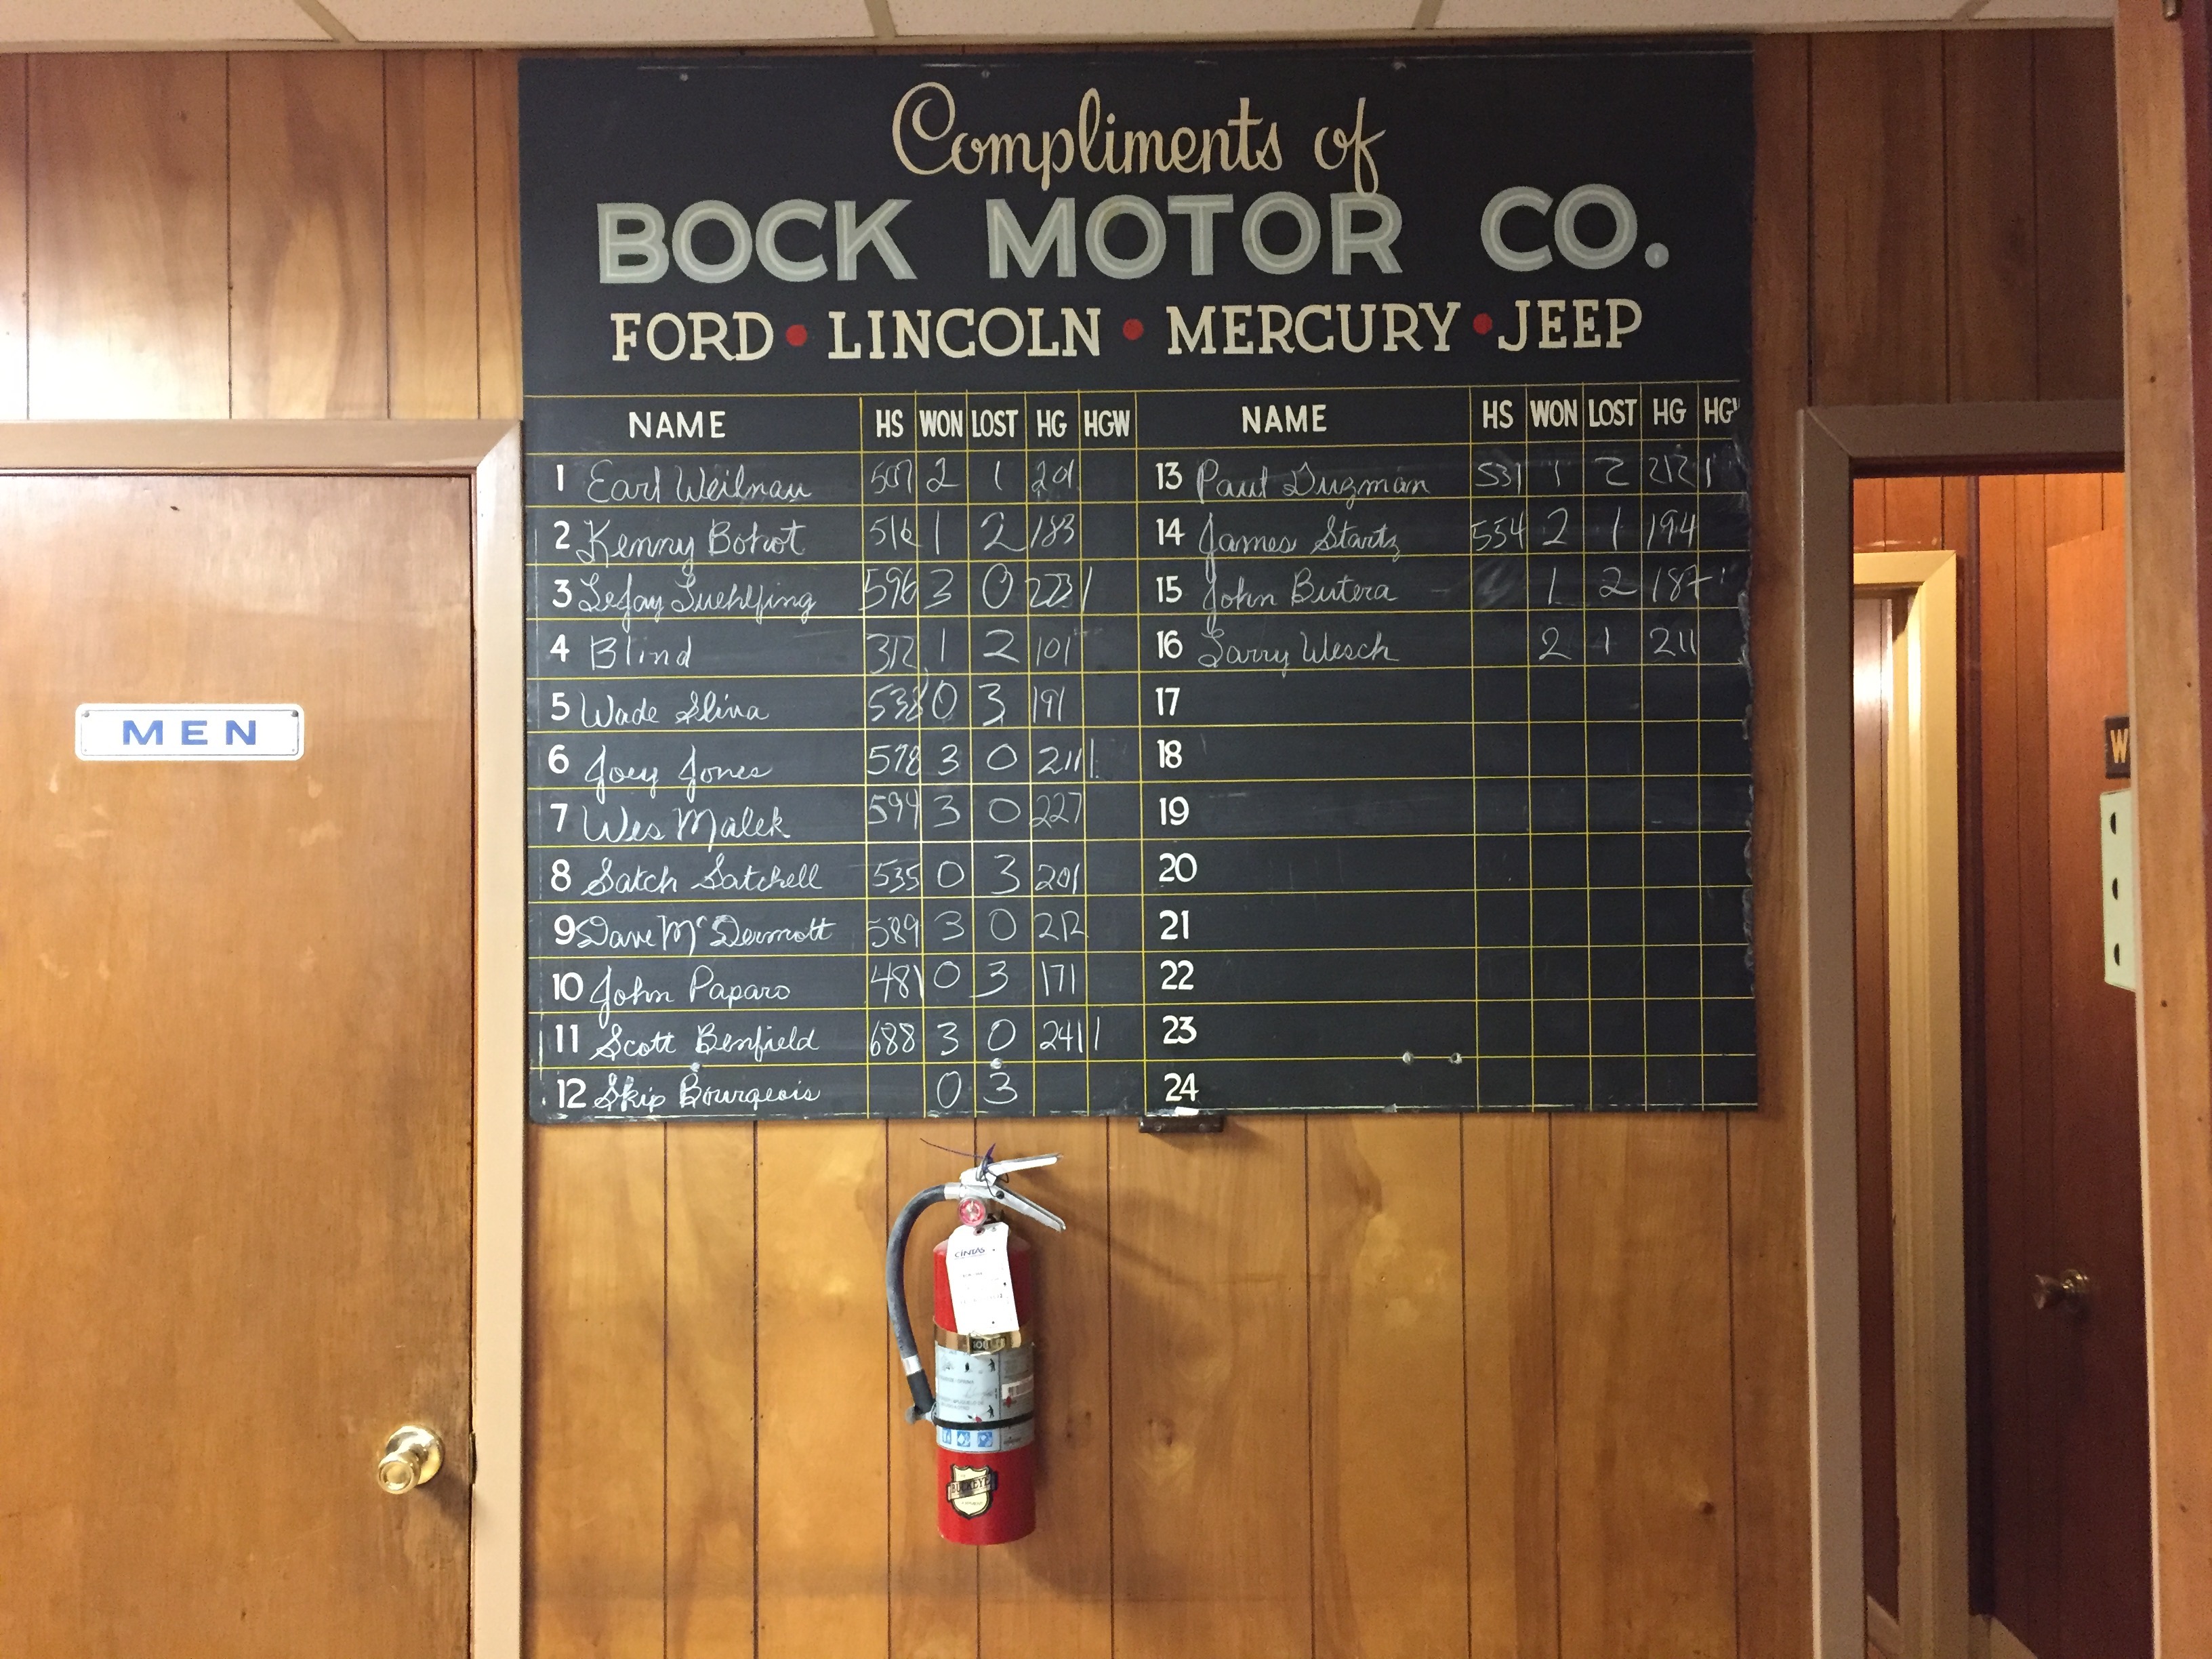 Compliments of
BOCK MOTOR CO.
FORD • LINCOLN • MERCURY • JEEP
NAME HS WON LOST HG HGW
1 Earl Weilnau 507 2 1 201
2 Kenny Bohot 516 1 2 183
3 LeJay Luehlfing 596 3 0 223 1
4 Blind 312 1 2 101
5 Wade Sliva 538 0 3 191
6 Joey Jones 578 3 0 211 1
7 Wes Malek 594 3 0 227
8 Satch Satchell 535 0 3 201
9 Dave McDermott 589 3 0 212
10 John Paparo 481 0 3 171
11 Scott Benfield 688 3 0 241 1
12 Skip Bourgeois 0 3
NAME HS WON LOST HG HGW
13 Paul Guzman 531 1 2 212 1
14 James Startz 554 2 1 194
15 John Butera 1 2 187
16 Larry Wesch 2 1 211
17
18
19
20
21
22
23
24
MEN
W
CINTAS
BUCKEYE